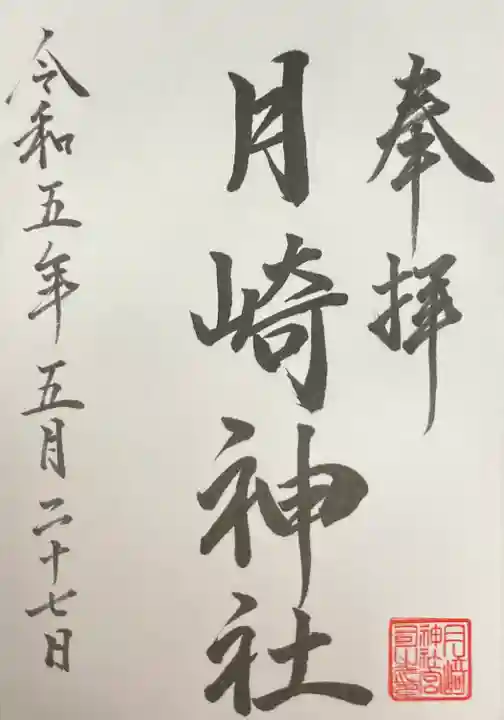 奉拝
月崎神社
令和五年五月二十七日
月﨑
神社宮
司之章